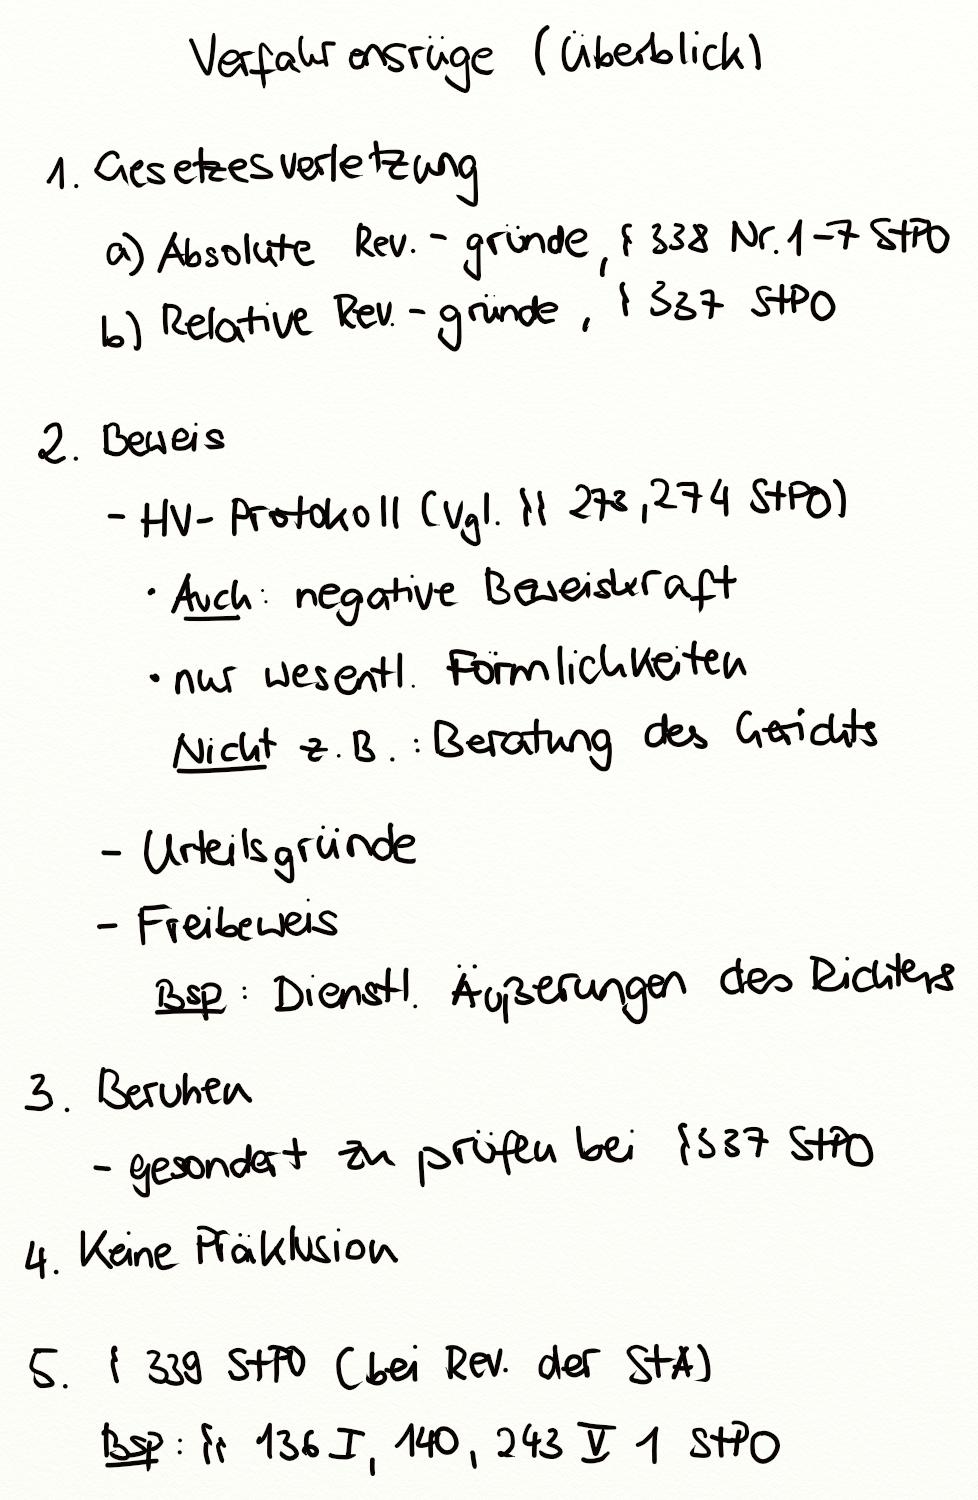 Verfahrensrüge (Überblick)
1. Gesetzesverletzung
a) Absolute Rev.-gründe, § 338 Nr. 1-7 StPO
b) Relative Rev.-gründe, § 337 StPO
2. Beweis
- HV-Protokoll (Vgl. §§ 273, 274 StPO)
· Auch: negative Beweiskraft
· nur wesentl. Förmlichkeiten
Nicht z.B.: Beratung des Gerichts
- Urteilsgründe
- Freibeweis
Bsp: Dienstl. Äußerungen des Richters
3. Beruhen
- gesondert zu prüfen bei § 337 StPO
4. Keine Präklusion
5. § 339 StPO (bei Rev. der StA)
Bsp: §§ 136 I, 140, 243 V 1 StPO